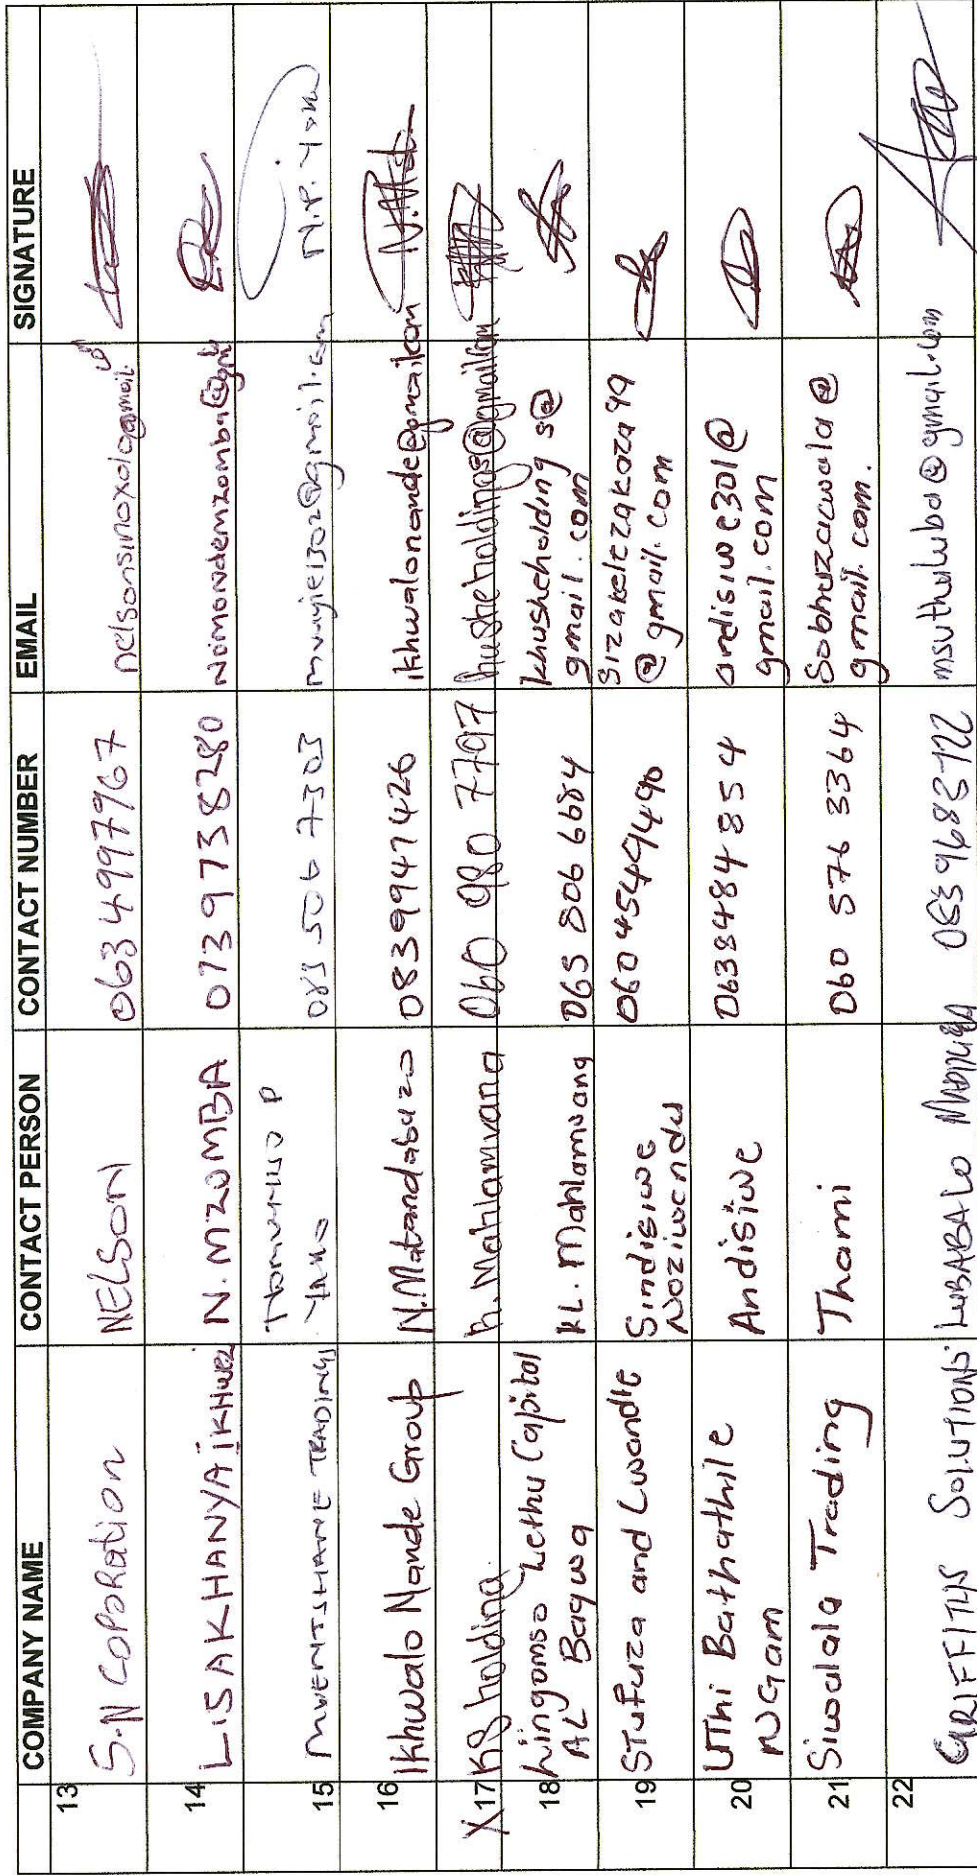 COMPANY NAME CONTACT PERSON CONTACT NUMBER EMAIL SIGNATURE
13 S.N COPORation NELSON 063 4997967 nelsonsinoxolo@gmail.co
14 LISAKHANYA IKHWEZI N. MZOMBA 073 973 8280 Nomondemzomba@gm
15 TRADING P
083 506 7303 N.P. Yam
16 Ikhwalo Nande Group N. Matandabuzo 083 9947426 Ikhwalonande@gmail.com
X 17 KB holding. h. Mahlamvana 060 980 7797 husheholdings@gmail.com
18 Lingomso Lethu Capital KL. Mahlamvana 065 806 6684 khusheholding s@
AL Baqwa gmail.com
19 STufuza and Lwandle Sindisiwe 060 4549490 sizakelezakoza99
@ gmail.com
20 UThi Bathathile Andisiwe 0638484854 andisiwe301@
NGam gmail.com
21 Siwalala Trading Thami 060 576 3364 Sobhuzacwala@
gmail.com.
22 GRIFFITHS SOLUTIONS LUBABALO 083 9688722 msuthulubo@gmail.com